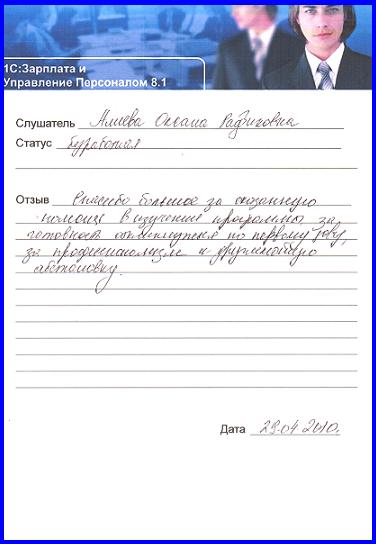 1С:Зарплата и
Управление Персоналом 8.1
Слушатель Алиева Оксана
Статус
Отзыв Спасибо большое за оказанную
помощь в изучении программы, за
готовность откликнуться по первому зову,
за профессионализм и дружескую
обстановку.
Дата 29.04.2010.